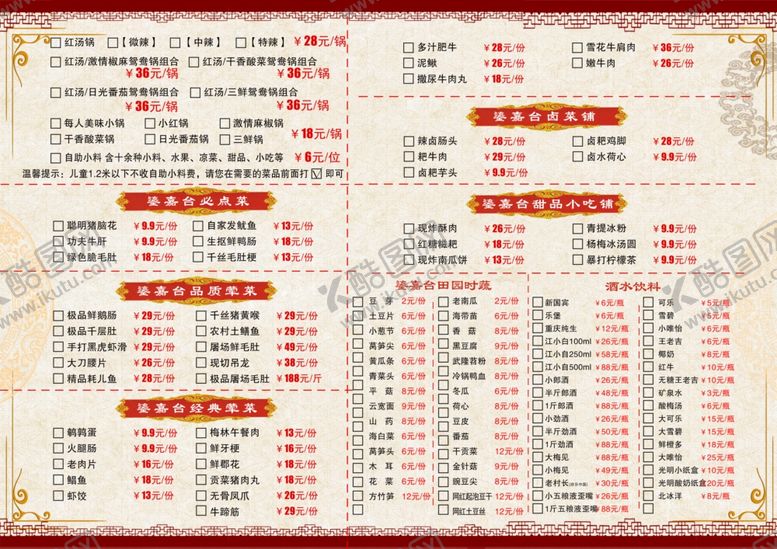 红汤锅 【微辣】 【中辣】 【特辣】 ¥28元/锅
红汤/激情椒麻鸳鸯锅组合 红汤/干香酸菜鸳鸯锅组合
¥36元/锅 ¥36元/锅
红汤/日光番茄鸳鸯锅组合 红汤/三鲜鸳鸯锅组合
¥36元/锅 ¥36元/锅
每人美味小锅 小红锅 激情麻椒锅
干香酸菜锅 日光番茄锅 三鲜锅 ¥18元/锅
自助小料 含十余种小料、水果、凉菜、甜品、小吃等 ¥6元/位
温馨提示:儿童1.2米以下不收自助小料费,请您在需要的菜品前面打☑即可
婆嘉台必点菜
聪明猪脑花 ¥9.9元/份 自家发鱿鱼 ¥13元/份
功夫牛肝 ¥9.9元/份 生抠鲜鸭肠 ¥18元/份
绿色脆毛肚 ¥18元/份 千丝毛肚梗 ¥13元/份
婆嘉台品质荤菜
极品鲜鹅肠 ¥29元/份 千丝猪黄喉 ¥29元/份
极品千层肚 ¥29元/份 农村土鳝鱼 ¥29元/份
手打黑虎虾滑 ¥29元/份 屠场鲜毛肚 ¥49元/份
大刀腰片 ¥26元/份 现切吊龙 ¥38元/份
精品耗儿鱼 ¥28元/份 极品屠场毛肚 ¥188元/斤
婆嘉台经典荤菜
鹌鹑蛋 ¥9.9元/份 梅林午餐肉 ¥13元/份
火腿肠 ¥9.9元/份 鲜牙梗 ¥16元/份
老肉片 ¥16元/份 鲜郡花 ¥18元/份
鲳鱼 ¥18元/份 贡菜猪肉丸 ¥18元/份
虾饺 ¥13元/份 无骨凤爪 ¥26元/份
牛蹄筋 ¥29元/份
多汁肥牛 ¥28元/份 雪花牛肩肉 ¥36元/份
泥鳅 ¥26元/份 嫩牛肉 ¥26元/份
撒尿牛肉丸 ¥18元/份
婆嘉台卤菜铺
辣卤肠头 ¥28元/份 卤粑鸡脚 ¥28元/份
粑牛肉 ¥29元/份 卤水荷心 ¥9.9元/份
卤粑芋头 ¥9.9元/份
婆嘉台甜品小吃铺
现炸酥肉 ¥26元/份 青提冰粉 ¥9.9元/份
红糖糍粑 ¥18元/份 杨梅冰汤圆 ¥9.9元/份
现炸南瓜饼 ¥13元/份 暴打柠檬茶 ¥9.9元/份
婆嘉台田园时蔬
豆芽 2元/份 老南瓜 2元/份
土豆片 6元/份 海带苗 6元/份
小葱节 6元/份 香菇 8元/份
莴笋尖 6元/份 黑豆腐 9元/份
黄瓜条 6元/份 武隆苕粉 9元/份
青菜头 6元/份 冷锅鸭血 8元/份
平菇 8元/份 冬瓜 6元/份
云宽面 9元/份 荷心 8元/份
山药 8元/份 豆皮 8元/份
海白菜 6元/份 番茄 8元/份
莴笋头 6元/份 干贡菜 12元/份
木耳 6元/份 金针菇 9元/份
花菜 6元/份 豌豆尖 8元/份
方竹笋 12元/份 网红起泡豆干 12元/份
网红土豆丝 12元/份
酒水饮料
新国宾 ¥6元/瓶 可乐 ¥5元/瓶
乐堡 ¥6元/瓶 雪碧 ¥5元/瓶
重庆纯生 ¥12元/瓶 小唯怡 ¥6元/瓶
江小白100ml ¥26元/瓶 王老吉 ¥6元/瓶
江小白250ml ¥58元/瓶 椰奶 ¥8元/瓶
江小白500ml ¥88元/瓶 红牛 ¥10元/瓶
小郎酒 ¥26元/瓶 无糖王老吉 ¥6元/瓶
半斤郎酒 ¥48元/瓶 矿泉水 ¥3元/瓶
1斤郎酒 ¥88元/瓶 酸梅汤 ¥6元/瓶
小劲酒 ¥26元/瓶 大可乐 ¥15元/瓶
半斤劲酒 ¥50元/瓶 大雪碧 ¥15元/瓶
1斤劲酒 ¥88元/瓶 鲜橙多 ¥18元/瓶
大梅见 ¥88元/瓶 大唯怡 ¥25元/瓶
小梅见 ¥49元/瓶 光明小纸盒 ¥10元/瓶
老村长 ¥30元/瓶 光明酸奶纸盒 ¥20元/瓶
小五粮液歪嘴 ¥26元/瓶 北冰洋 ¥8元/瓶
1斤五粮液歪嘴 ¥88元/瓶